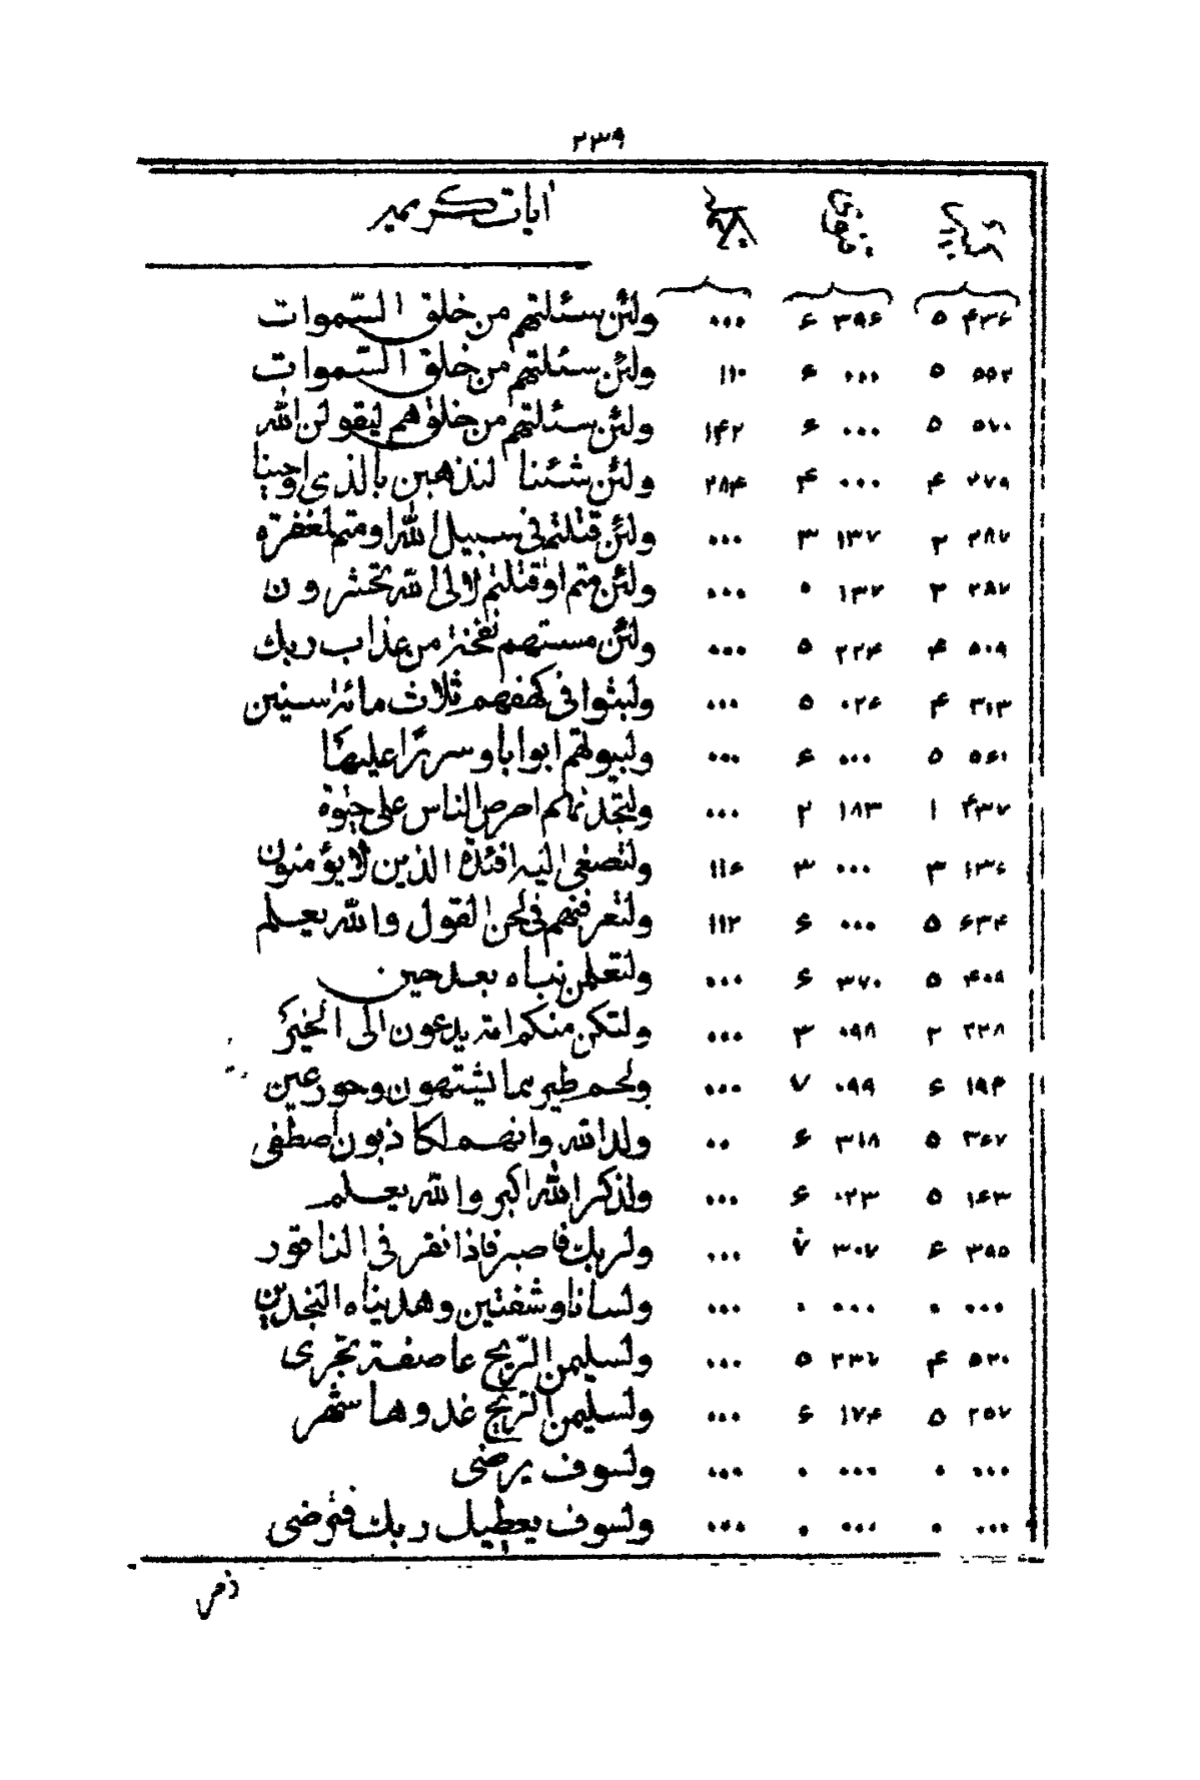 ۲۳۹
آیات کریمه
۴۳۶ ۵ ۳۹۶ ۶ ۰۰۰ ولئن سئلتهم من خلق السّموات
۵۵۲ ۵ ۰۰۰ ۶ ۱۱۰ ولئن سئلتهم من خلق السّموات
۵۷۰ ۵ ۰۰۰ ۶ ۱۴۲ ولئن سئلتهم من خلقهم لیقولن الله
۲۷۹ ۴ ۰۰۰ ۴ ۲۸۴ ولئن شئنا لنذهبن بالذی اوحینا
۲۸۷ ۲ ۱۳۷ ۳ ۰۰۰ ولئن قتلتم فی سبیل الله او متم لمغفرة
۲۸۷ ۲ ۱۳۷ ۰ ۰۰۰ ولئن متم او قتلتم لالی الله تحشرون
۵۰۹ ۴ ۲۲۴ ۵ ۰۰۰ ولئن مستهم نفحة من عذاب ربك
۳۱۳ ۴ ۰۲۶ ۵ ۰۰۰ ولبثوا فی کهفهم ثلاث مائة سنین
۵۶۱ ۵ ۰۰۰ ۶ ۰۰۰ ولبیوتهم ابوابا وسررًا علیها
۴۳۷ ۱ ۱۸۳ ۲ ۰۰۰ ولتجدنهم احرص الناس علی حیٰوة
۱۳۶ ۳ ۰۰۰ ۳ ۱۱۶ ولتصغی الیه افئدة الذین لا یؤمنون
۶۳۴ ۵ ۰۰۰ ۶ ۱۱۲ ولتعرفنهم فی لحن القول والله یعلم
۴۰۸ ۵ ۳۷۰ ۶ ۰۰۰ ولتعلمن نباه بعد حین
۲۲۸ ۲ ۰۹۸ ۳ ۰۰۰ ولتکن منکم امة یدعون الی الخیر
۱۹۴ ۶ ۰۹۹ ۷ ۰۰۰ ولحم طیر مما یشتهون وحور عین
۳۶۷ ۵ ۳۱۸ ۶ ۰۰ ولد الله وانهم لکاذبون اصطفی
۱۶۳ ۵ ۰۲۳ ۶ ۰۰۰ ولذکر الله اکبر والله یعلم
۳۹۵ ۶ ۳۰۷ ۷ ۰۰۰ ولربك فاصبر فاذا نقر فی الناقور
۰۰۰ ۰ ۰۰۰ ۰ ۰۰۰ ولسانا وشفتین وهدیناه النجدین
۵۳۰ ۴ ۲۳۶ ۵ ۰۰۰ ولسلیمن الرّیح عاصفة تجری
۲۵۷ ۵ ۱۷۴ ۶ ۰۰۰ ولسلیمن الرّیح غدوها شهر
۰۰۰ ۰ ۰۰۰ ۰ ۰۰۰ ولسوف یرضی
۰۰۰ ۰ ۰۰۰ ۰ ۰۰۰ ولسوف یعطیك ربك فترضی